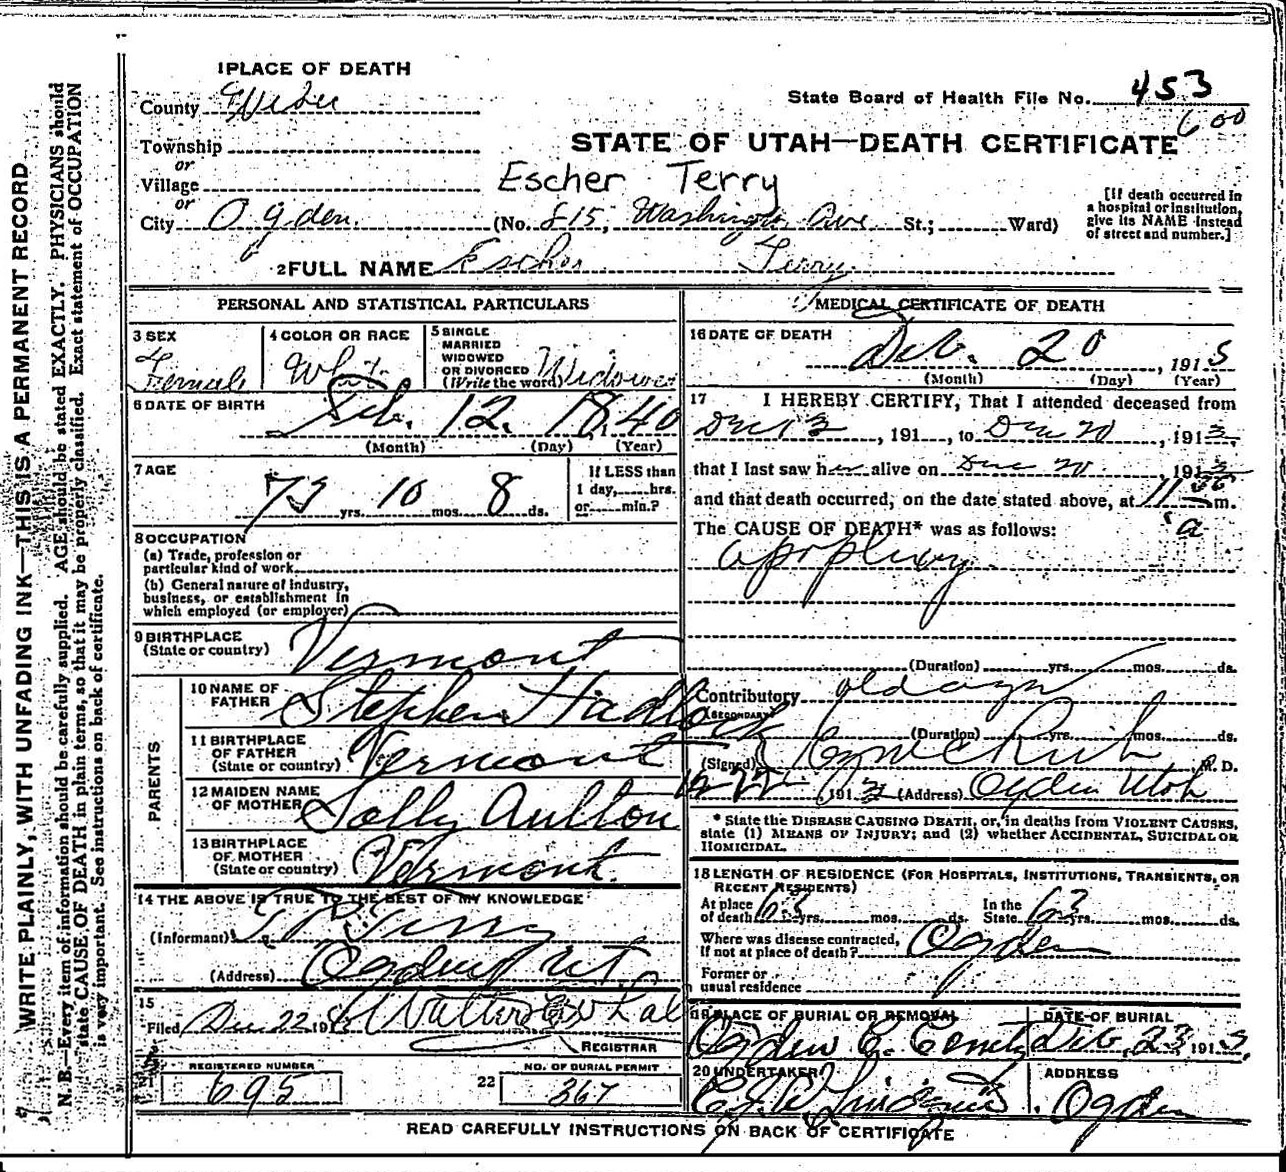 1 PLACE OF DEATH
County Weber
State Board of Health File No. 453
600
Township
or
Village
or
City Ogden.
STATE OF UTAH—DEATH CERTIFICATE
Escher Terry
(No. 815, Washington Ave. St.; Ward)
[If death occurred in
a hospital or institution,
give its NAME instead
of street and number.]
2 FULL NAME Escher Terry
PERSONAL AND STATISTICAL PARTICULARS
3 SEX
Female
4 COLOR OR RACE
White
5 SINGLE
MARRIED
WIDOWED
OR DIVORCED
(Write the word) Widowed
6 DATE OF BIRTH
Feb. 12. 1840
(Month) (Day) (Year)
7 AGE
73 yrs. 10 mos. 8 ds.
If LESS than
1 day,......hrs.
or......min.?
8 OCCUPATION
(a) Trade, profession or
particular kind of work
(b) General nature of industry,
business, or establishment in
which employed (or employer)
9 BIRTHPLACE
(State or country)
Vermont
PARENTS
10 NAME OF
FATHER
Stephen Hadlock
11 BIRTHPLACE
OF FATHER
(State or country)
Vermont
12 MAIDEN NAME
OF MOTHER
Sally Aulton
13 BIRTHPLACE
OF MOTHER
(State or country)
Vermont.
14 THE ABOVE IS TRUE TO THE BEST OF MY KNOWLEDGE
(Informant) T. R. Terry
(Address) Ogden Ut.
15
Filed Dec 22 191
REGISTRAR
21 REGISTERED NUMBER
695
22 NO. OF BURIAL PERMIT
367
MEDICAL CERTIFICATE OF DEATH
16 DATE OF DEATH
Deb. 20, 1913
(Month) (Day) (Year)
17 I HEREBY CERTIFY, That I attended deceased from
Dec 13, 191..., to Dec 20, 1913,
that I last saw her alive on Dec 20, 1913
and that death occurred, on the date stated above, at 11 m.
a
The CAUSE OF DEATH* was as follows:
apoplexy
(Duration) yrs. mos. ds.
Contributory old age
(SECONDARY)
(Duration) yrs. mos. ds.
(Signed) M. D.
12-22 1913 (Address) Ogden Utah
* State the DISEASE CAUSING DEATH, or, in deaths from VIOLENT CAUSES,
state (1) MEANS OF INJURY; and (2) whether ACCIDENTAL, SUICIDAL OR
HOMICIDAL.
18 LENGTH OF RESIDENCE (FOR HOSPITALS, INSTITUTIONS, TRANSIENTS, OR
RECENT RESIDENTS)
At place
of death 63 yrs. mos. ds.
In the
State 63 yrs. mos. ds.
Where was disease contracted,
if not at place of death? Ogden
Former or
usual residence
19 PLACE OF BURIAL OR REMOVAL
Ogden C. Cemetery
DATE OF BURIAL
Deb. 23, 1913.
20 UNDERTAKER
ADDRESS
Ogden
READ CAREFULLY INSTRUCTIONS ON BACK OF CERTIFICATE
WRITE PLAINLY, WITH UNFADING INK—THIS IS A PERMANENT RECORD
N. B.—Every item of information should be carefully supplied. AGE should be stated EXACTLY. PHYSICIANS should
state CAUSE OF DEATH in plain terms, so that it may be properly classified. Exact statement of OCCUPATION
is very important. See instructions on back of certificate.